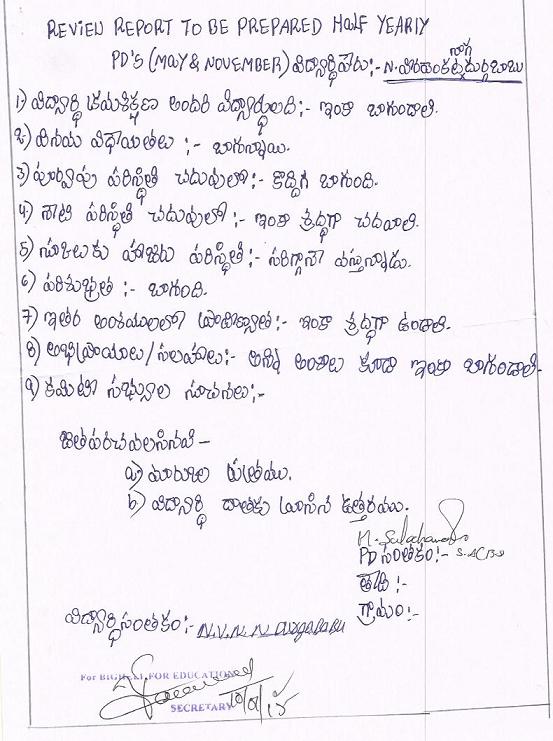 REVIEW REPORT TO BE PREPARED HALF YEARLY
PD'S (MAY & NOVEMBER) విద్యార్థి పేరు:- N. వీరవెంకట నాగ దుర్గబాబు
1) విద్యార్థి క్రమశిక్షణ అందరి విద్యార్థులది:- ఇంకా బాగుండాలి.
2) వినయ విధేయతలు :- బాగున్నాయి.
3) పూర్వపు పరిస్థితి చదువులో:- కొద్దిగ బాగుంది.
4) నాటి పరిస్థితి చదువులో:- ఇంకా శ్రద్ధగా చదవాలి.
5) స్కూలుకు హాజరు పరిస్థితి:- సరిగ్గానే వస్తున్నాడు.
6) పరిశుభ్రత :- బాగుంది.
7) ఇతర అంశములలో ప్రావీణ్యత:- ఇంకా శ్రద్ధగా ఉండాలి.
8) అభిప్రాయాలు/సలహాలు:- అన్ని అంశాలు కూడా ఇంకా బాగుండాలి-
9) కమిటీ సభ్యుల సూచనలు:-
జతపరచవలసినవి-
a) మార్కుల పత్రము.
b) విద్యార్థి దాతకు వ్రాసిన ఉత్తరము.
PD సంతకం:-
తేది :-
గ్రామం:-
విద్యార్థి సంతకం:- N.V.N.N. Durgababu
For FOR EDUCATIONAL
SECRETARY